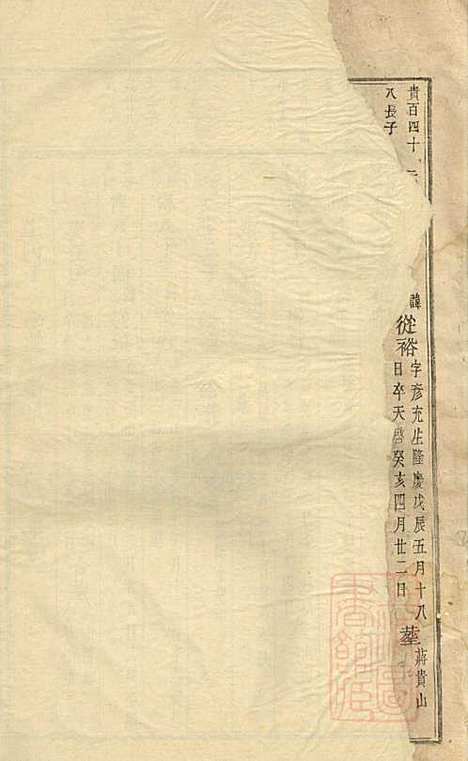 貴百四十
八長子
諱
從裕
字彥充生隆慶戊辰五月十八
日卒天啓癸亥四月廿二日
葬
蔣貴山